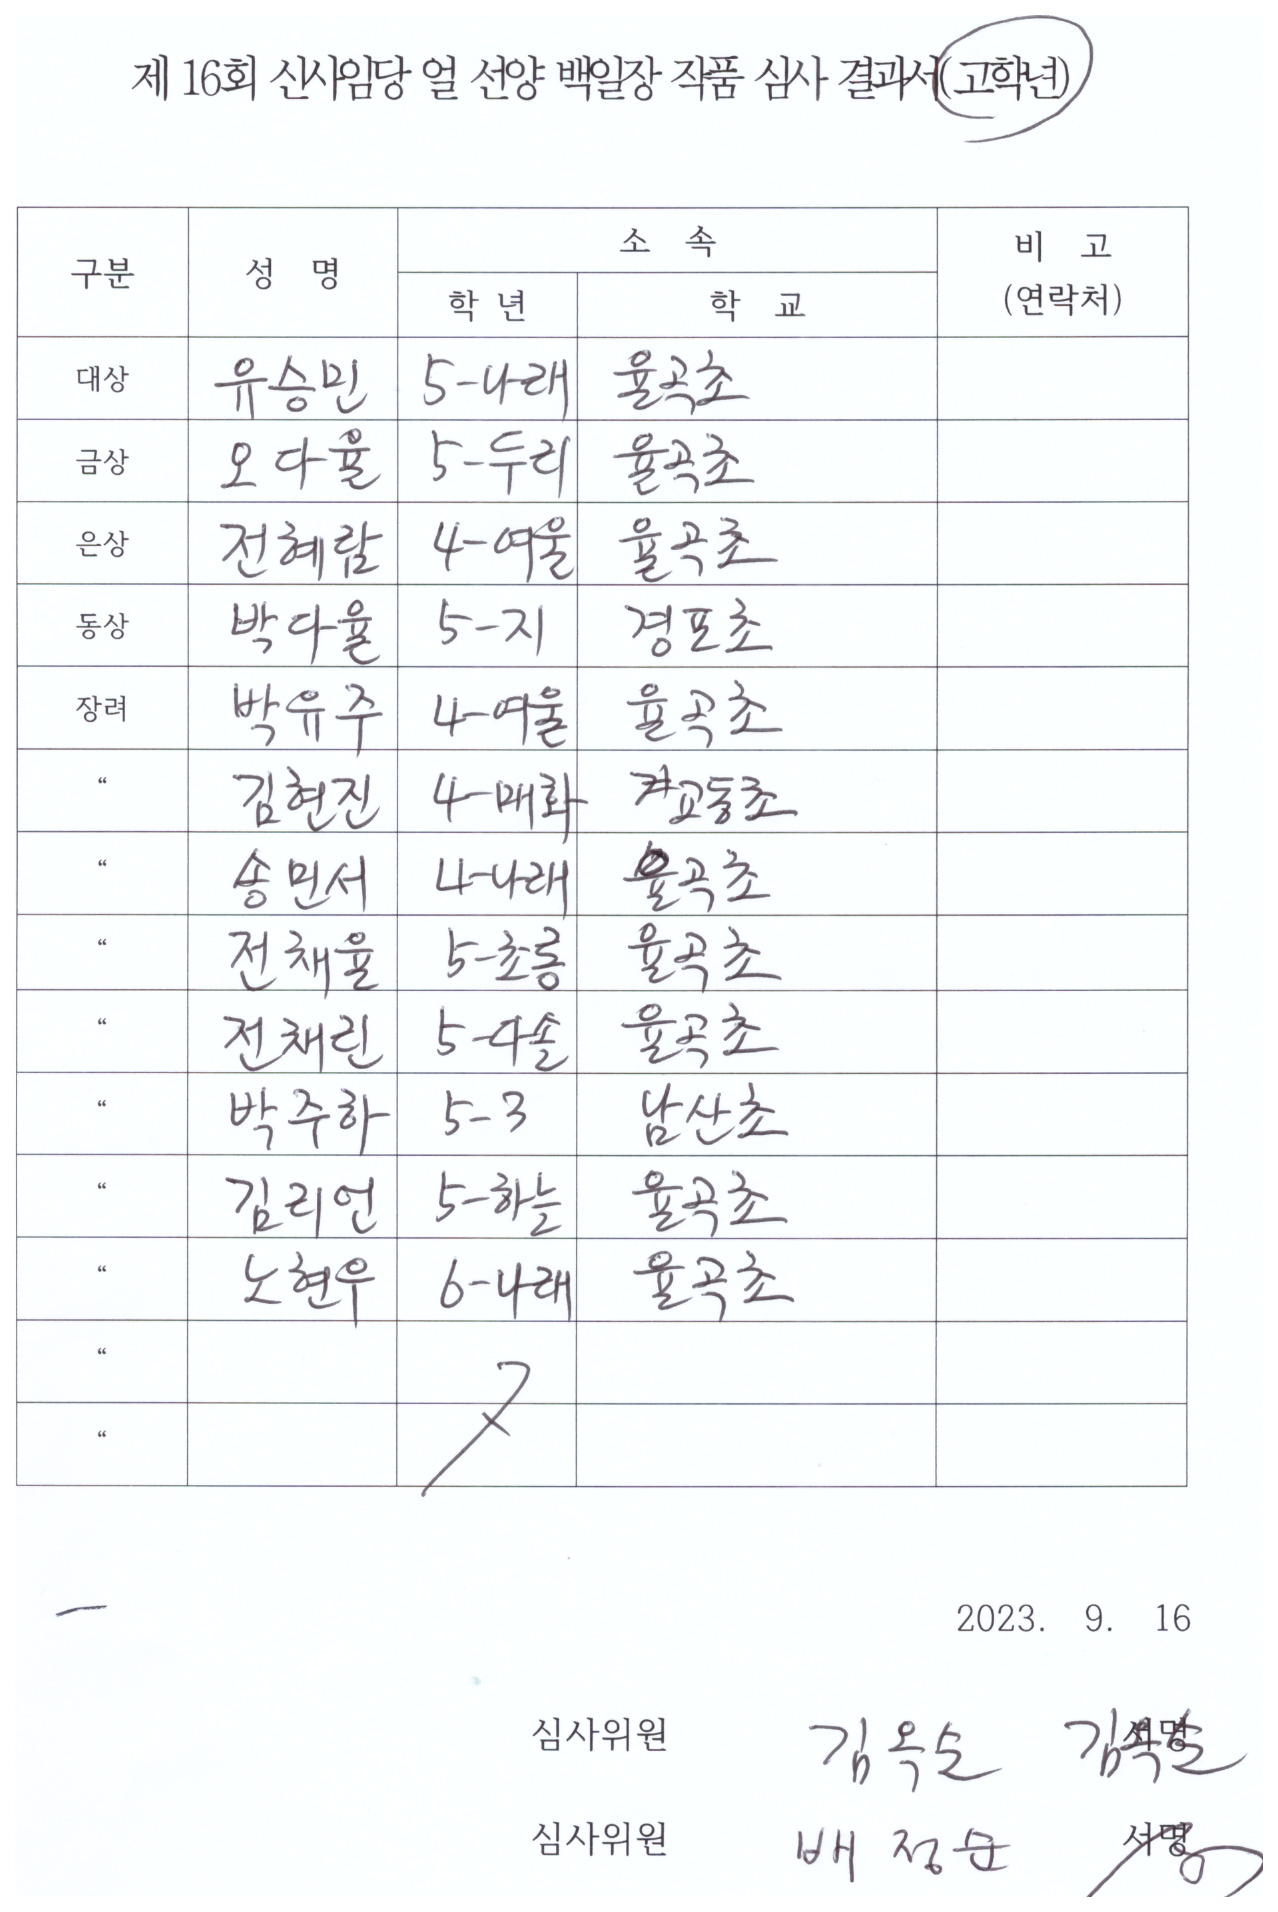 제 16회 신사임당 얼 선양 백일장 작품 심사 결과서(고학년)
구분 성 명 소 속 비 고
(연락처)
학 년 학 교
대상 유승민 5-나래 율곡초
금상 오다율 5-두리 율곡초
은상 전혜람 4-여울 율곡초
동상 박다율 5-지 경포초
장려 박유주 4-여울 율곡초
“ 김현진 4-매화 교동초
“ 송민서 4-나래 율곡초
“ 전채율 5-초롱 율곡초
“ 전채린 5-다솔 율곡초
“ 박주하 5-3 남산초
“ 김리언 5-하늘 율곡초
“ 노현우 6-나래 율곡초
“
“
2023. 9. 16
심사위원 김옥순 서명 김옥순
심사위원 배정순 서명